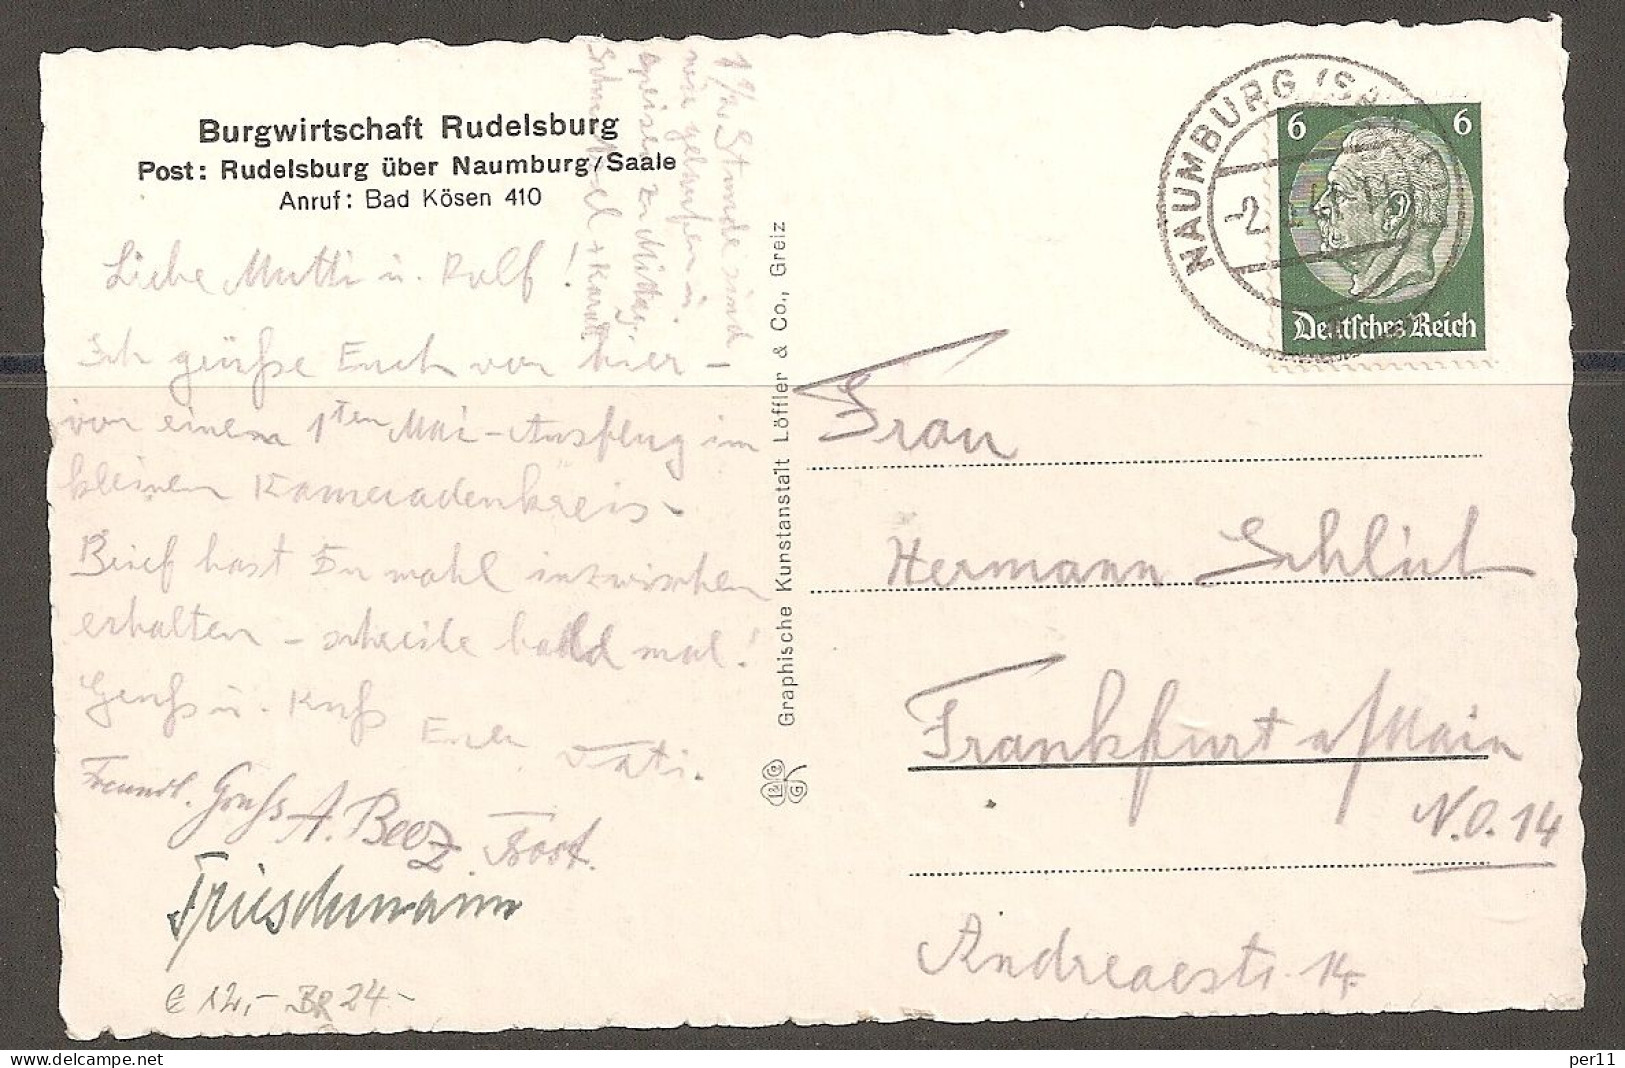 Burgwirtschaft Rudelsburg
Post: Rudelsburg über Naumburg/Saale
Anruf: Bad Kösen 410
1½ Stunde sind
wir gelaufen u.
speisen zu Mittag.
Liebe Mutti u. Rolf!
Ich grüße Euch von hier –
von einem 1ten Mai-Ausflug im
kleinen Kameradenkreis.
Brief hast Du wohl inzwischen
erhalten – schreibe bald mal!
Gruß u. Kuß Euer Vati.
Freundl. Gruß A. Beez
Frieschmann
E 12,- BR 24-
Graphische Kunstanstalt Löffler & Co., Greiz
L & Co G
NAUMBURG (SA
-2.
6 6
Deutsches Reich
Frau
Hermann
Frankfurt a/Main
N.O. 14
Andreaestr. 14
delcampe.net
per11